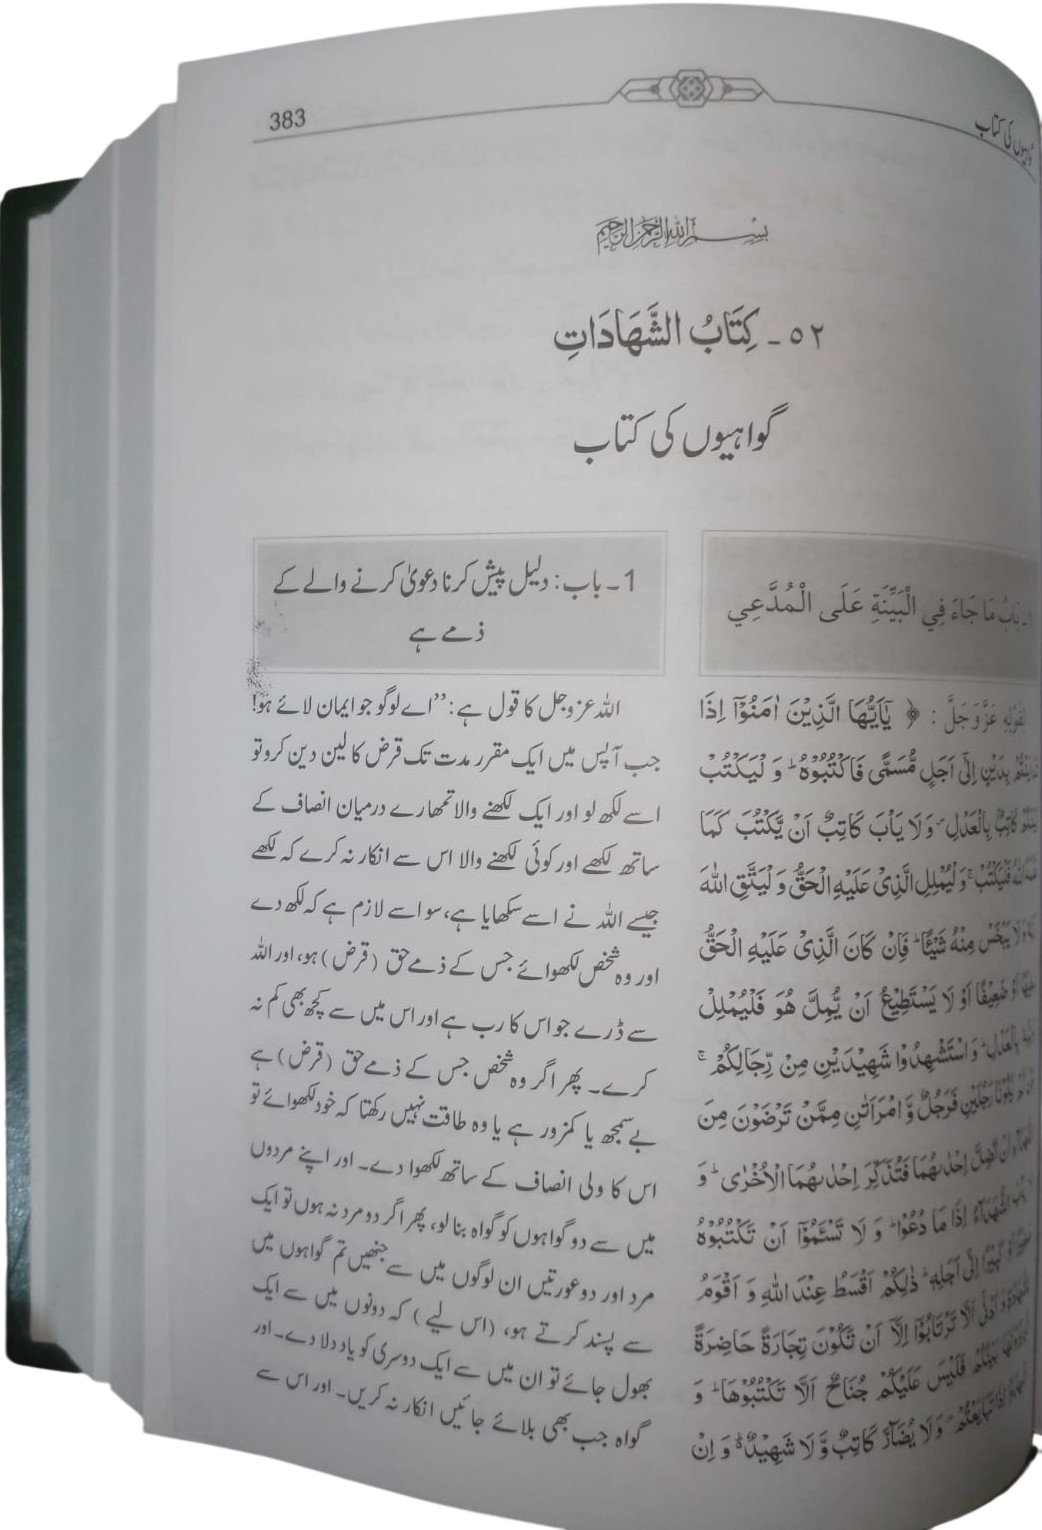 383
گواہیوں کی کتاب
بِسْمِ اللهِ الرَّحْمٰنِ الرَّحِيْمِ
٥٢ ـ كِتَابُ الشَّهَادَاتِ
گواہیوں کی کتاب
بَابُ مَا جَاءَ فِي الْبَيِّنَةِ عَلَى الْمُدَّعِي
لِقَوْلِهِ عَزَّ وَجَلَّ : ﴿ يٰۤاَيُّهَا الَّذِيْنَ اٰمَنُوْۤا اِذَا
بِدَيْنٍ اِلٰۤى اَجَلٍ مُّسَمًّى فَاكْتُبُوْهُ ؕ وَ لْيَكْتُبْ
كَاتِبٌۢ بِالْعَدْلِ ۪ وَ لَا يَاْبَ كَاتِبٌ اَنْ يَّكْتُبَ كَمَا
اللّٰهُ فَلْيَكْتُبْ ۚ وَ لْيُمْلِلِ الَّذِيْ عَلَيْهِ الْحَقُّ وَ لْيَتَّقِ اللّٰهَ
وَ لَا يَبْخَسْ مِنْهُ شَيْـًٔا ؕ فَاِنْ كَانَ الَّذِيْ عَلَيْهِ الْحَقُّ
اَوْ ضَعِيْفًا اَوْ لَا يَسْتَطِيْعُ اَنْ يُّمِلَّ هُوَ فَلْيُمْلِلْ
بِالْعَدْلِ ؕ وَ اسْتَشْهِدُوْا شَهِيْدَيْنِ مِنْ رِّجَالِكُمْ ۚ
يَكُوْنَا رَجُلَيْنِ فَرَجُلٌ وَّ امْرَاَتٰنِ مِمَّنْ تَرْضَوْنَ مِنَ
اَنْ تَضِلَّ اِحْدٰىهُمَا فَتُذَكِّرَ اِحْدٰىهُمَا الْاُخْرٰى ؕ وَ
الشُّهَدَآءُ اِذَا مَا دُعُوْا ؕ وَ لَا تَسْـَٔمُوْۤا اَنْ تَكْتُبُوْهُ
اَوْ كَبِيْرًا اِلٰۤى اَجَلِهٖ ؕ ذٰلِكُمْ اَقْسَطُ عِنْدَ اللّٰهِ وَ اَقْوَمُ
وَ اَدْنٰۤى اَلَّا تَرْتَابُوْۤا اِلَّاۤ اَنْ تَكُوْنَ تِجَارَةً حَاضِرَةً
بَيْنَكُمْ فَلَيْسَ عَلَيْكُمْ جُنَاحٌ اَلَّا تَكْتُبُوْهَا ؕ وَ
اِذَا تَبَايَعْتُمْ ۪ وَ لَا يُضَآرَّ كَاتِبٌ وَّ لَا شَهِيْدٌ ؕ۬ وَ اِنْ
1 ـ باب: دلیل پیش کرنا دعویٰ کرنے والے کے
ذمے ہے
اللہ عزوجل کا قول ہے: ’’اے لوگو جو ایمان لائے ہو!
جب آپس میں ایک مقرر مدت تک قرض کا لین دین کرو تو
اسے لکھ لو اور ایک لکھنے والا تمھارے درمیان انصاف کے
ساتھ لکھے اور کوئی لکھنے والا اس سے انکار نہ کرے کہ لکھے
جیسے اللہ نے اسے سکھایا ہے، سو اسے لازم ہے کہ لکھ دے
اور وہ شخص لکھوائے جس کے ذمے حق (قرض) ہو، اور اللہ
سے ڈرے جو اس کا رب ہے اور اس میں سے کچھ بھی کم نہ
کرے۔ پھر اگر وہ شخص جس کے ذمے حق (قرض) ہے
بے سمجھ یا کمزور ہے یا وہ طاقت نہیں رکھتا کہ خود لکھوائے تو
اس کا ولی انصاف کے ساتھ لکھوا دے۔ اور اپنے مردوں
میں سے دو گواہوں کو گواہ بنا لو، پھر اگر دو مرد نہ ہوں تو ایک
مرد اور دو عورتیں ان لوگوں میں سے جنھیں تم گواہوں میں
سے پسند کرتے ہو، (اس لیے) کہ دونوں میں سے ایک
بھول جائے تو ان میں سے ایک دوسری کو یاد دلا دے۔ اور
گواہ جب بھی بلائے جائیں انکار نہ کریں۔ اور اس سے